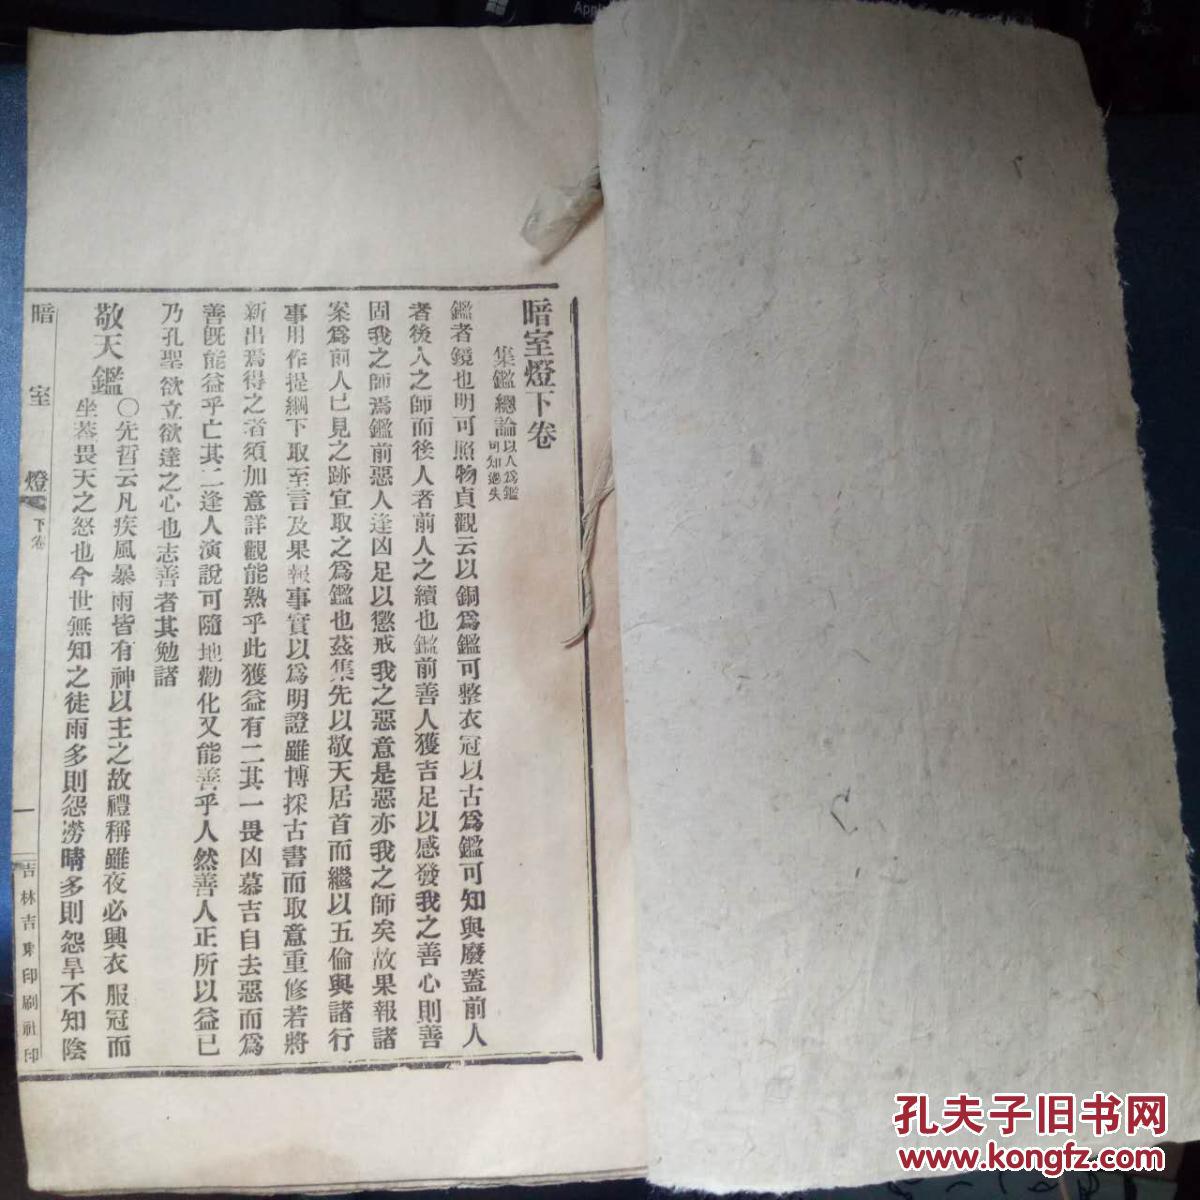 暗室燈下卷
集鑑總論以人爲鑑可知過失
鑑者鏡也明可照物貞觀云以銅爲鑑可整衣冠以古爲鑑可知興廢蓋前人
者後人之師而後人者前人之續也鑑前善人獲吉足以感發我之善心則善
固我之師焉鑑前惡人逢凶足以懲戒我之惡意是惡亦我之師矣故果報諸
案爲前人已見之跡宜取之爲鑑也茲集先以敬天居首而繼以五倫與諸行
事用作提綱下取至言及果報事實以爲明證雖博採古書而取意重修若將
新出焉得之者須加意詳觀能熟乎此獲益有二其一畏凶慕吉自去惡而爲
善既能益乎亡其二逢人演說可隨地勸化又能善乎人然善人正所以益已
乃孔聖欲立欲達之心也志善者其勉諸
敬天鑑
○先哲云凡疾風暴雨皆有神以主之故禮稱雖夜必興衣服冠而
坐蓋畏天之怒也今世無知之徒雨多則怨澇晴多則怨旱不知陰
暗室燈
下卷
一
吉林吉東印刷社印
孔夫子旧书网
www.kongfz.com